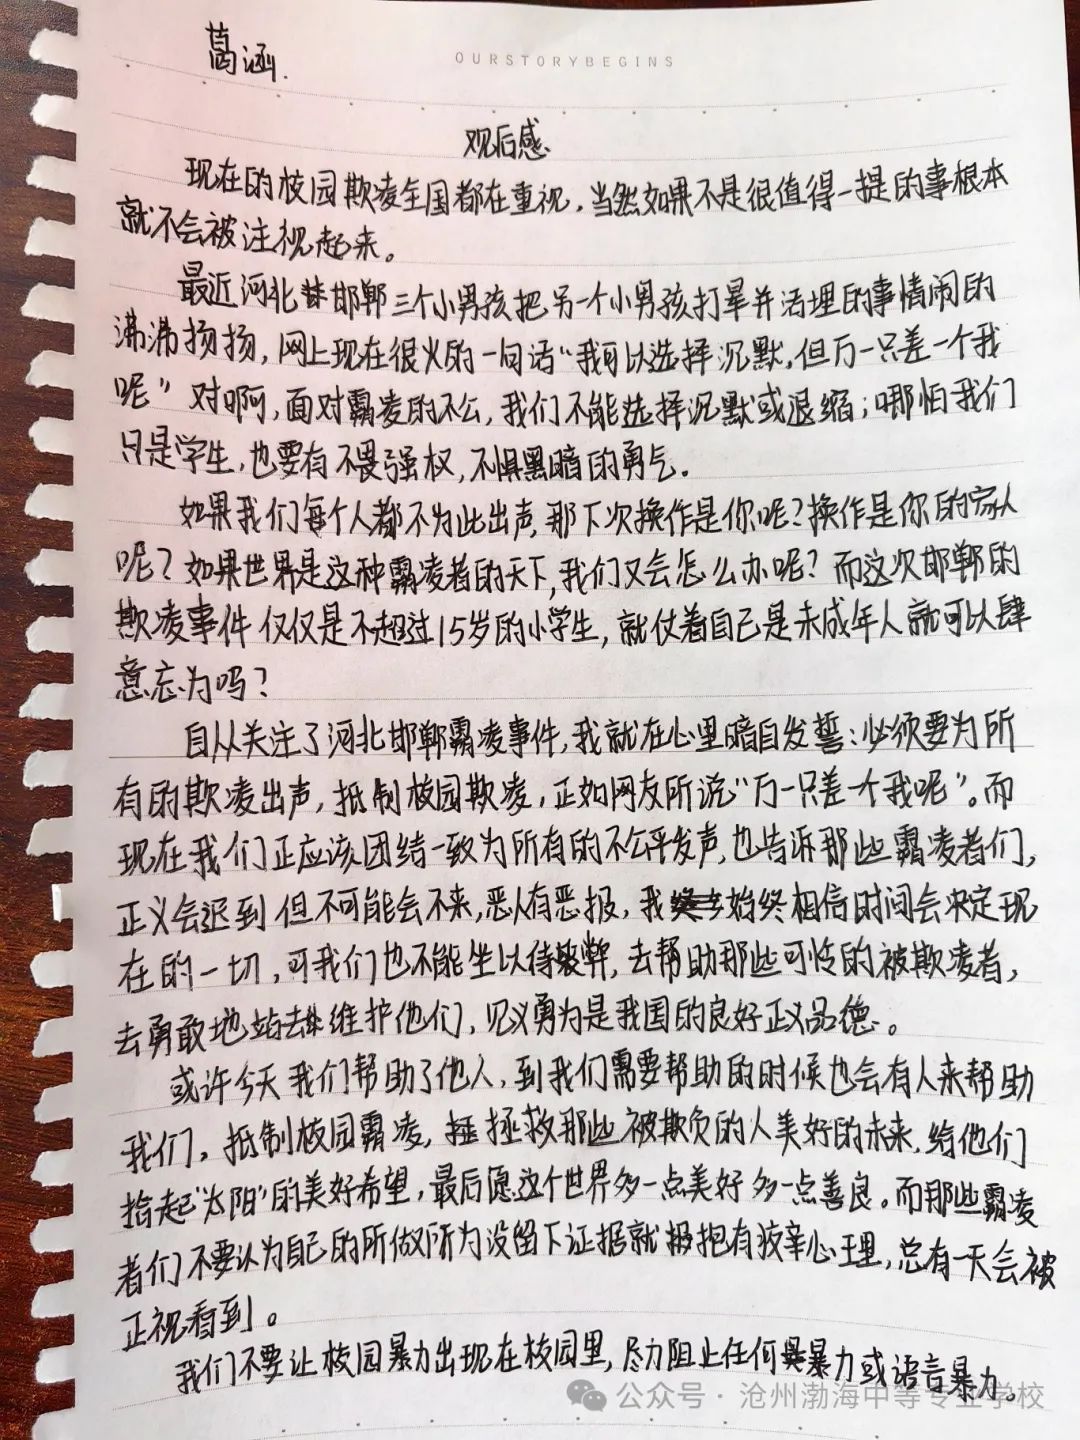 葛涵.
OURSTORYBEGINS
观后感
现在的校园欺凌全国都在重视,当然如果不是很值得一提的事根本
就不会被注视起来。
最近河北邯郸三个小男孩把另一个小男孩打晕并活埋的事情闹的
沸沸扬扬,网上现在很火的一句话“我可以选择沉默,但万一只差一个我
呢”对啊,面对霸凌的不公,我们不能选择沉默或退缩;哪怕我们
只是学生,也要有不畏强权,不惧黑暗的勇气.
如果我们每个人都不为此出声,那下次操作是你呢?操作是你的家人
呢?如果世界是这种霸凌者的天下,我们又会怎么办呢?而这次邯郸的
欺凌事件仅仅是不超过15岁的小学生,就仗着自己是未成年人就可以肆
意忘为吗?
自从关注了河北邯郸霸凌事件,我就在心里暗自发誓:必须要为所
有的欺凌出声,抵制校园欺凌,正如网友所说“万一只差一个我呢”。而
现在我们正应该团结一致为所有的不公平发声,也告诉那些霸凌者们,
正义会迟到但不可能会不来,恶人有恶报,我始终相信时间会决定现
在的一切,可我们也不能坐以待弊,去帮助那些可怜的被欺凌者,
去勇敢地站出维护他们,见义勇为是我国的良好正义品德.。
或许今天我们帮助了他人,到我们需要帮助的时候也会有人来帮助
我们,抵制校园霸凌,拯救那些被欺负的人美好的未来,给他们
拾起“太阳”的美好希望,最后愿这个世界多一点美好多一点善良。而那些霸凌
者们不要认为自己的所做所为没留下证据就抱有侥幸心理,总有一天会被
正视看到。
我们不要让校园暴力出现在校园里,尽力阻止任何暴力或语言暴力。
公众号·沧州渤海中等专业学校